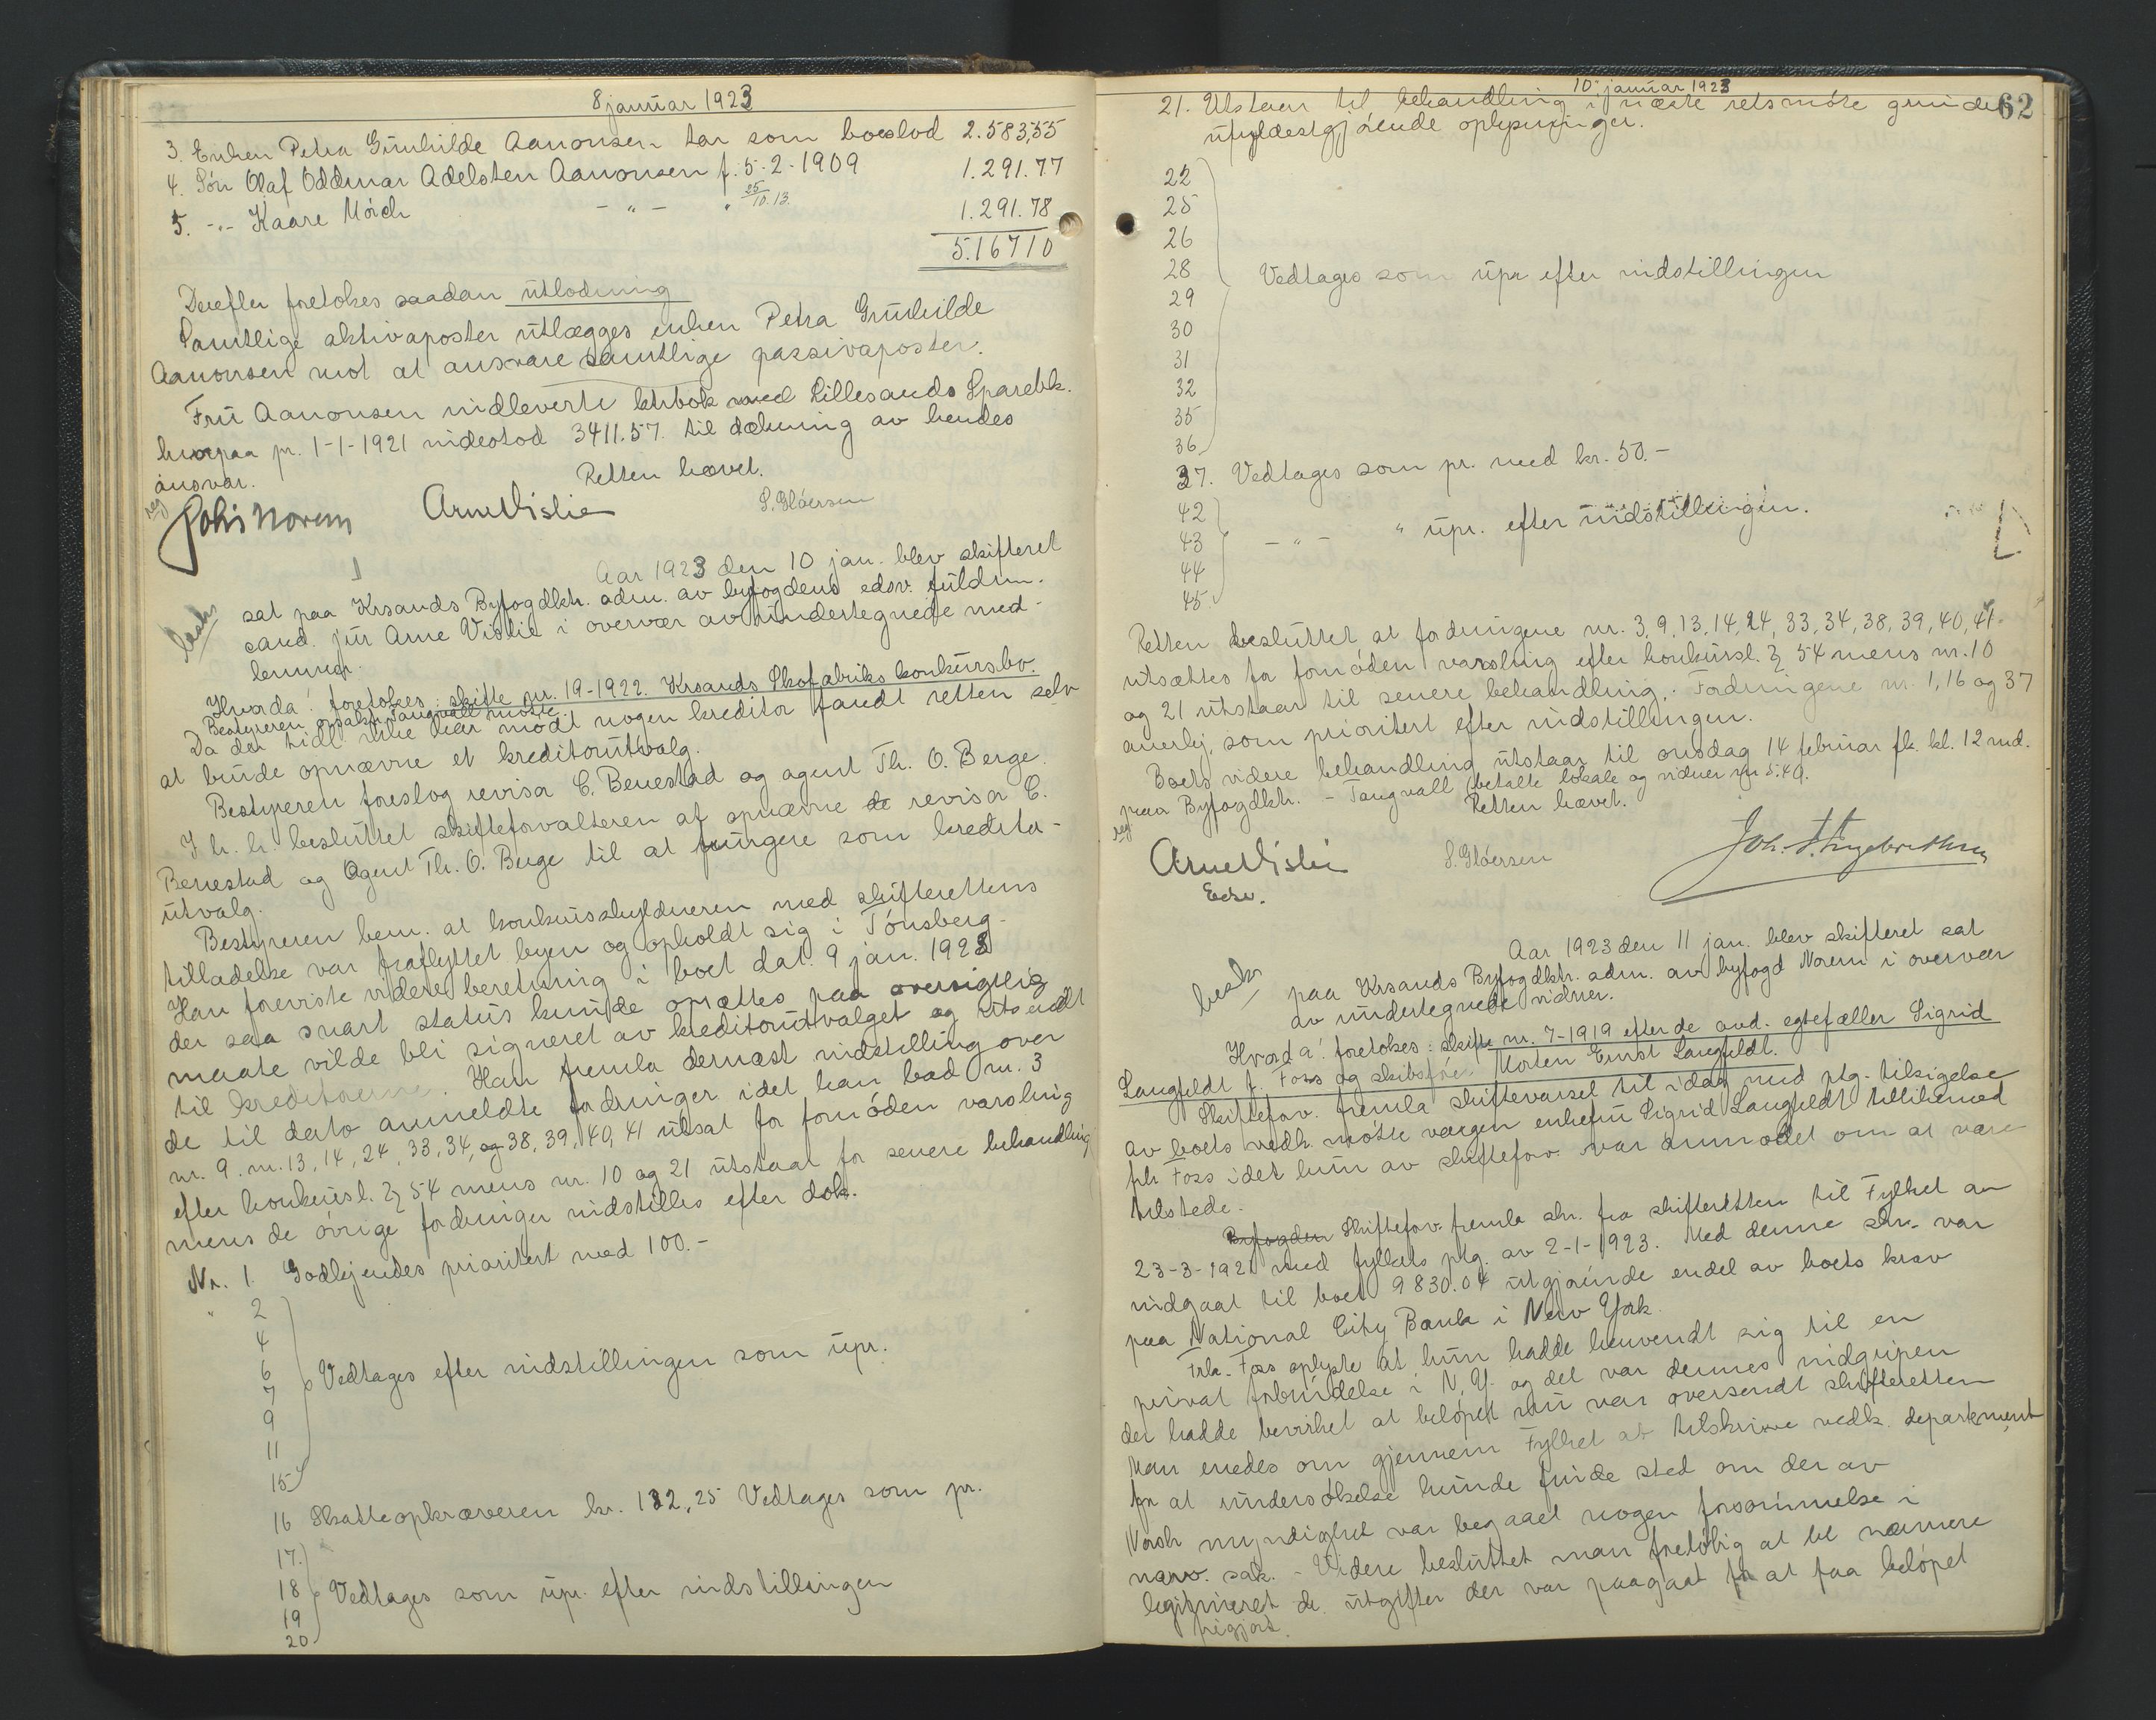 8 januar 1923
3. Enken Petra Gunhilde Aanonsen tar som boeslod 2.583,55
4. Sön Olaf Oddmar Adelsten Aanonsen f. 5-2-1909 1.291.77
5. -"- Kaare Mörch -"- " 25/10.13. 1.291.78
5.16710
Derefter foretokes saadan utlodning
Samtlige aktivaposter utlægges enken Petra Gunhilde
Aanonsen mot at ansvare samtlige passivaposter.
Fru Aanonsen indleverte bok med Lillesands Sparebk.
hvorpaa pr. 1-1-1921 indestod 3411.57. til dækning av hendes
ansvar.
Retten hævet.
Arne Vislie S. Glöersen
Aar 1923 den 10 jan. blev skifteret
sat paa Krsands Byfogdktr. adm. av byfogdens edsv. fuldm.
cand. jur Arne Vislie i overvær av undertegnede med-
lemmer.
Hvorda! foretokes: skifte nr. 19-1922. Krsands Skofabriks konkursbo.
Bestyreren o.r.sakf. Tangvall mötte.
Da der tidl. ikke har mödt nogen kreditor fandt retten selv
at burde opnævne et kreditorutvalg.
Bestyreren foreslog revisor C. Benestad og agent Th. O. Berge.
I h. h. besluttet skifteforvalteren at opnævne de revisor C.
Benestad og Agent Th. O. Berge til at fungere som kreditor-
utvalg.
Bestyreren bem. at konkursskyldneren med skifterettens
tilladelse var fraflyttet byen og opholdt sig i Tönsberg.
Han foreviste videre beretning i boet dat. 9 jan. 1923
der saa snart status kunde opsættes paa oversigtlig
maate vilde bli signeret av kreditorutvalget og utsendt
til kreditorerne. Han fremla dernæst indstilling over
de til dato anmeldte fordringer idet han bad nr. 3
nr. 9. nr. 13, 14, 24, 33, 34, og 38, 39, 40, 41 utsat for fornöden varsling
efter konkursl. § 54 mens nr. 10 og 21 utstaar for senere behandling
mens de övrige fordringer indstilles efter dok.
Nr. 1. Godkjendes prioritert med 100.-
" 2
4
6
7 Vedtages efter indstillingen som upr.
9
11
15
16 Skatteopkræveren kr. 122,25 Vedtages som pr.
17.
18 Vedtages som upr. efter indstillingen
19
20
10. januar 1923
62
21. Utstaar til behandling i næste retsmöte grundet
ufyldestgjörende oplysninger.
22
25
26
28 Vedtages som upr efter indstillingen
29
30
31
32
35
36
37. Vedtages som pr. med kr. 50.-
42
43 -"- " upr. efter indstillingen.
44
45
Retten besluttet at fordringene nr. 3, 9, 13, 14, 24, 33, 34, 38, 39, 40, 41.
utsættes for fornöden varsling efter konkursl. § 54 mens nr. 10
og 21 utstaar til senere behandling. Fordringene nr. 1, 16 og 37
anerkj. som prioritert efter indstillingen.
Boets videre behandling utstaar til onsdag 14 februar fk. kl. 12 md.
paa Byfogdktr. - Tangvall betalte lokale og vidner kr 5.40.
Retten hævet.
Arne Vislie S. Glöersen
Edsv.
Aar 1923 den 11 jan. blev skifteret sat
paa Krsands Byfogdktr. adm. av byfogd Norem i overvær
av undertegnede vidner.
Hvorda! foretokes: skifte nr. 7-1919 efter de avd. egtefæller Sigrid
Langfeldt f. Foss og skibsför. Morten Ernst Langfeldt.
Skiftefor. fremla skiftevarsel til idag med ptg. tilsigelse
av boets vedk. mötte værgen enkefru Sigrid Langfeldt tillikemed
frk Foss idet hun av skiftefor. var anmodet om at være
tilstede.
Byfogden Skiftefor. fremla skr. fra skifteretten til Fylket av
23-3-1921 med fylkets ptg. av 2-1-1923. Med denne skr. var
indgaat til boet 9830.04 utgjörende endel av boets krav
paa National City Bank i New York.
Frk. Foss oplyste at hun hadde henvendt sig til en
privat forbindelse i N.Y. og det var dennes indgripen
der hadde bevirket at belöpet nu var oversendt skifteretten
Man enedes om gjennem Fylket at tilskrive vedk. departement
for at undersökelse kunde finde sted om der av
Norsk myndighet var begaaet nogen forsömmelse i
nærv. sak. - Videre besluttet man foretöbig at bl nærmere
legitimeret de utgifter der var paagaat for at faa belöpet
frigjort.